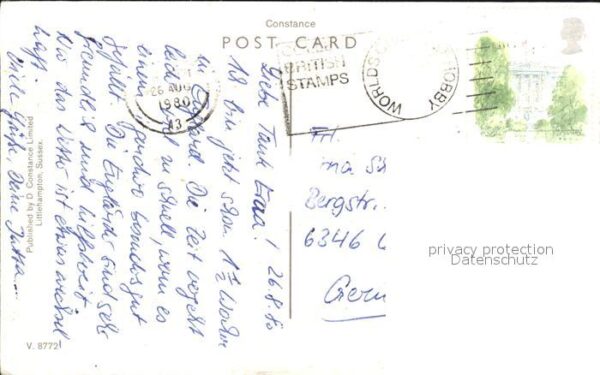 Constance
POST CARD
BRITISH
STAMPS
WORLDS
HOBBY
26 AUG
1980
Liebe Tante Erna! 26.8.80
Ich bin jetzt schon 1½ Wochen
in England. Die Zeit vergeht
leider viel zu schnell, wenn es
einem irgendwo besonders gut
gefällt. Die Engländer sind sehr
freundlich und hilfsbereit.
Nur das Wetter ist etwas wechsel-
haft.
Viele Grüße, Deine Jutta
Frl.
Bergstr.
6346
Published by D. Constance Limited
Littlehampton, Sussex.
V. 8772
privacy protection
Datenschutz